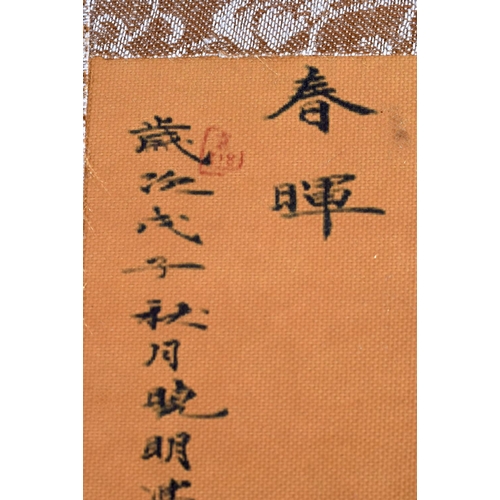 春暉
歲次戊子秋月曉明